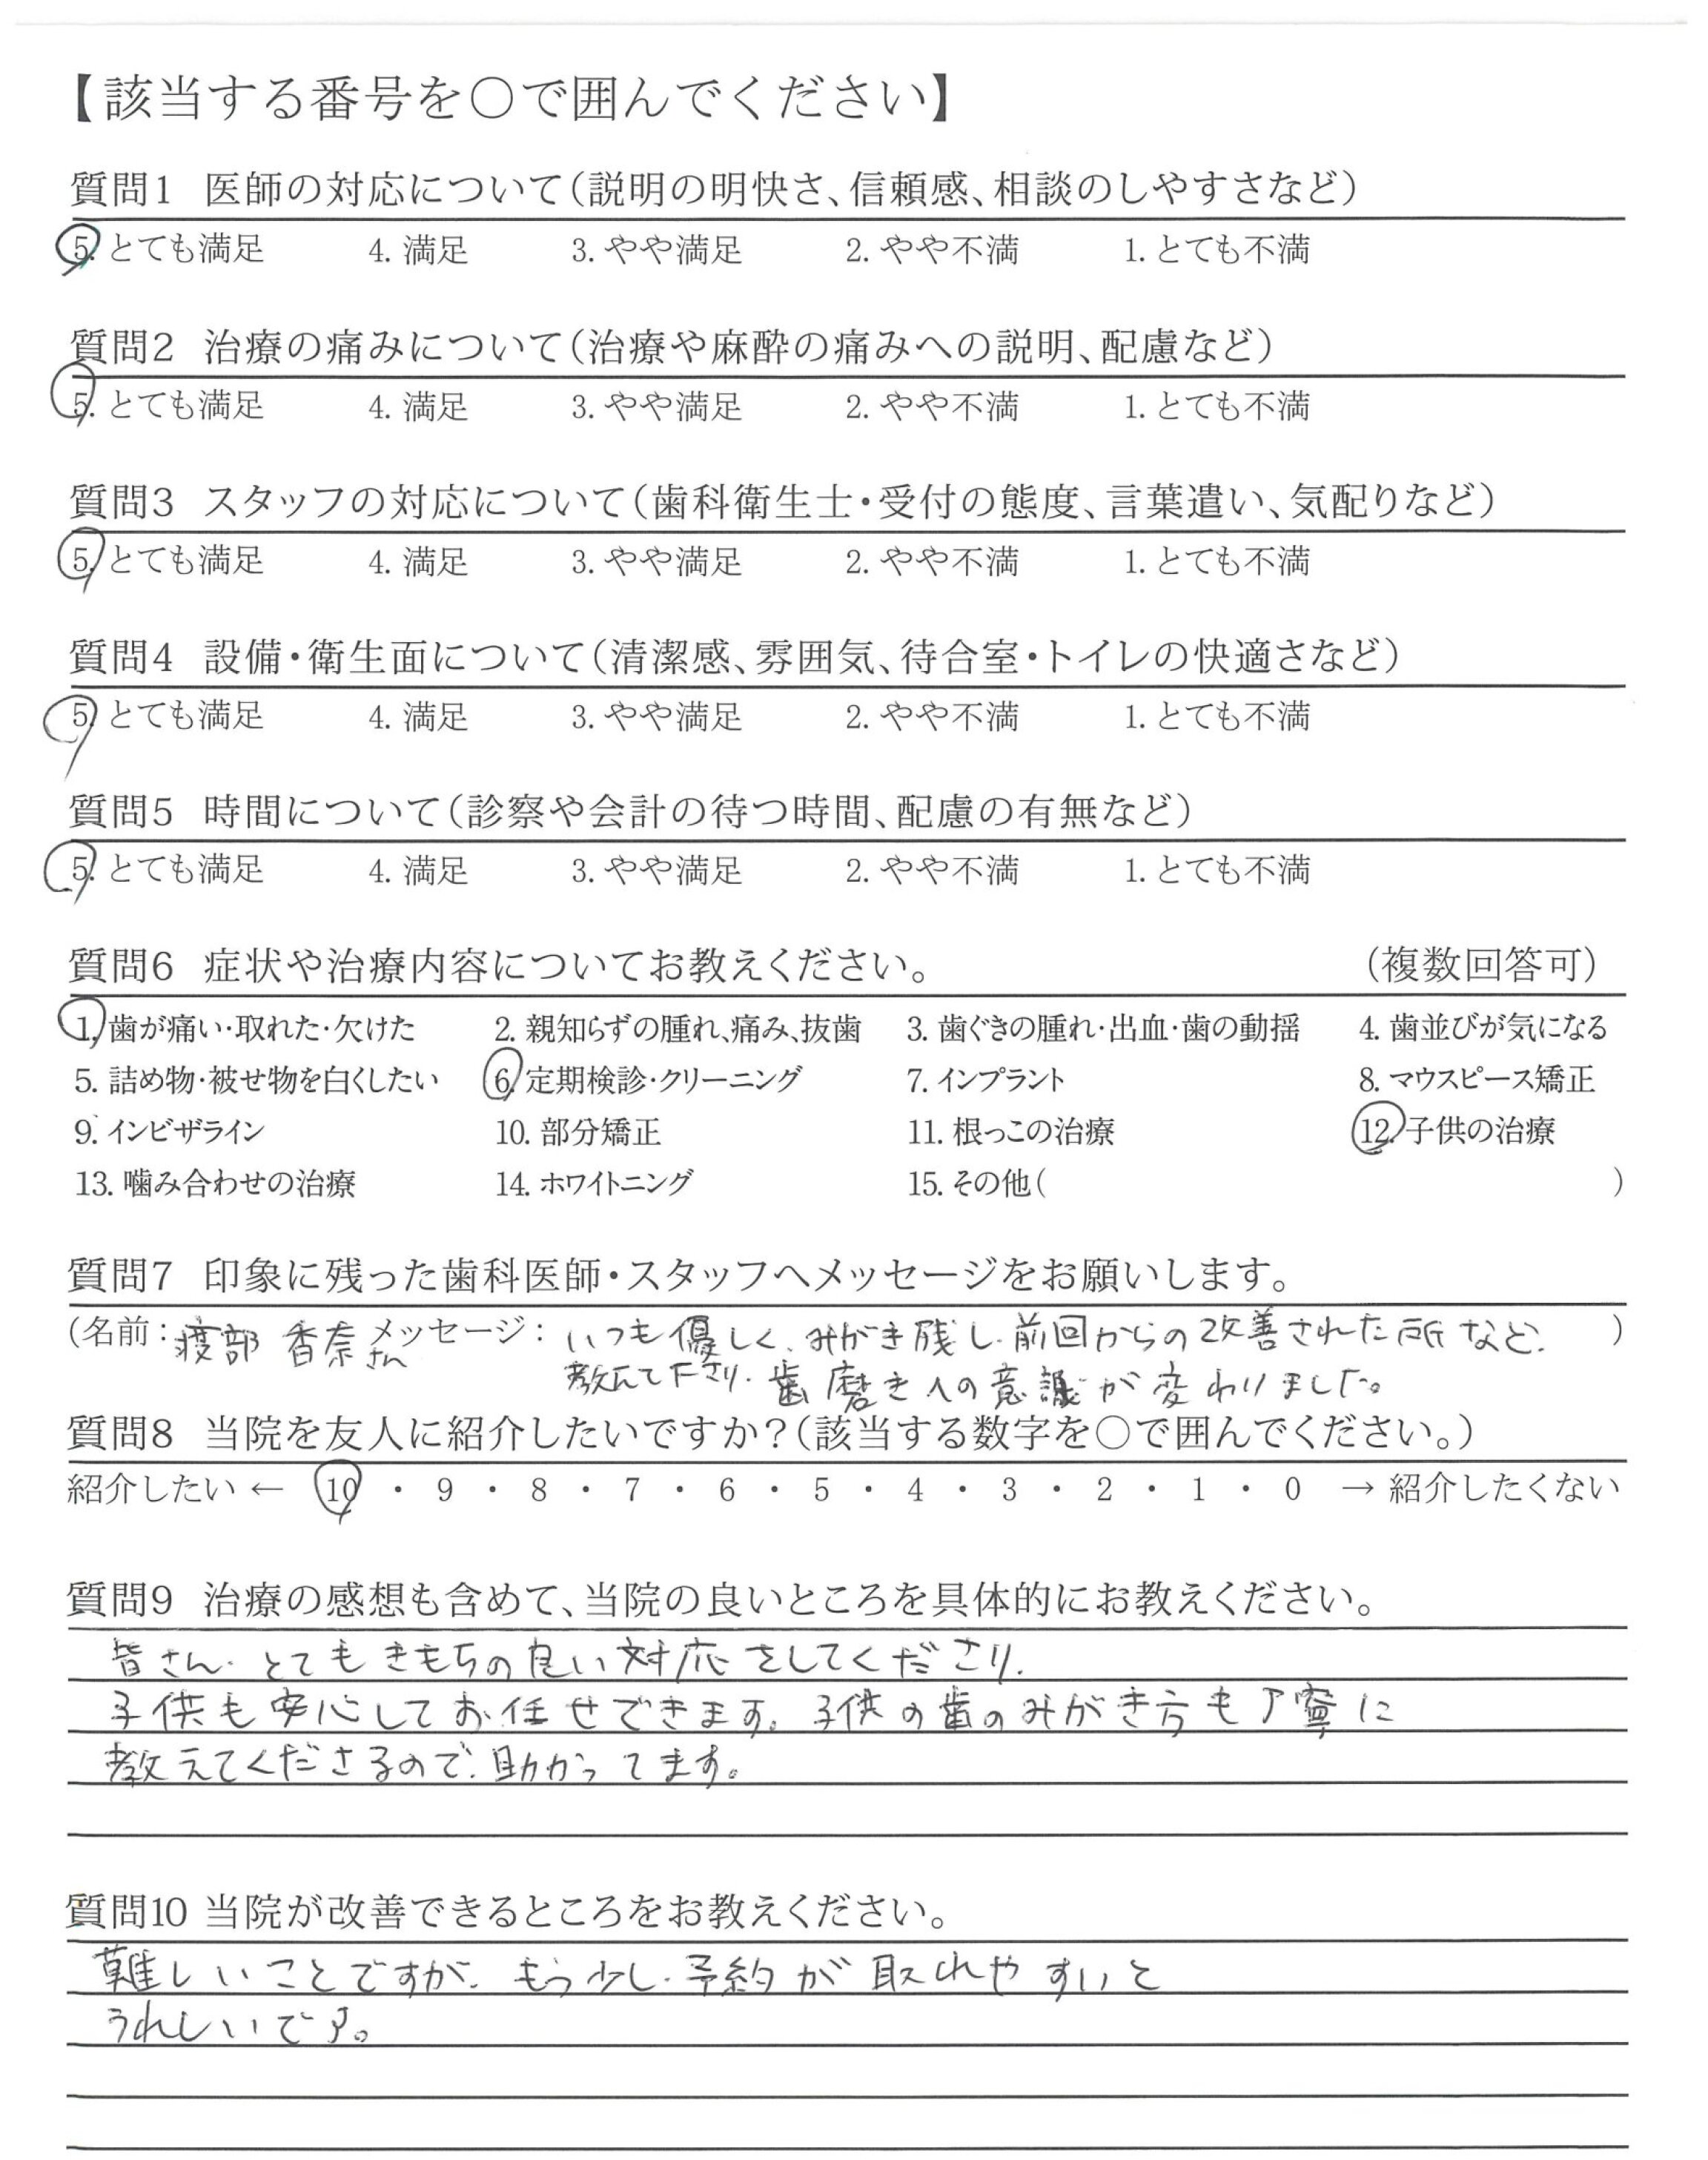 【該当する番号を○で囲んでください】
質問1 医師の対応について(説明の明快さ、信頼感、相談のしやすさなど)
5. とても満足 4. 満足 3. やや満足 2. やや不満 1. とても不満
質問2 治療の痛みについて(治療や麻酔の痛みへの説明、配慮など)
5. とても満足 4. 満足 3. やや満足 2. やや不満 1. とても不満
質問3 スタッフの対応について(歯科衛生士・受付の態度、言葉遣い、気配りなど)
5. とても満足 4. 満足 3. やや満足 2. やや不満 1. とても不満
質問4 設備・衛生面について(清潔感、雰囲気、待合室・トイレの快適さなど)
5. とても満足 4. 満足 3. やや満足 2. やや不満 1. とても不満
質問5 時間について(診察や会計の待つ時間、配慮の有無など)
5. とても満足 4. 満足 3. やや満足 2. やや不満 1. とても不満
質問6 症状や治療内容についてお教えください。 (複数回答可)
1. 歯が痛い・取れた・欠けた 2. 親知らずの腫れ、痛み、抜歯 3. 歯ぐきの腫れ・出血・歯の動揺 4. 歯並びが気になる
5. 詰め物・被せ物を白くしたい 6. 定期検診・クリーニング 7. インプラント 8. マウスピース矯正
9. インビザライン 10. 部分矯正 11. 根っこの治療 12. 子供の治療
13. 噛み合わせの治療 14. ホワイトニング 15. その他( )
質問7 印象に残った歯科医師・スタッフへメッセージをお願いします。
(名前: 渡部 香奈さん メッセージ: いつも優しく、みがき残し、前回からの改善された所など、 )
教えて下さり、歯磨きへの意識が変わりました。
質問8 当院を友人に紹介したいですか?(該当する数字を○で囲んでください。)
紹介したい ← 10 ・ 9 ・ 8 ・ 7 ・ 6 ・ 5 ・ 4 ・ 3 ・ 2 ・ 1 ・ 0 → 紹介したくない
質問9 治療の感想も含めて、当院の良いところを具体的にお教えください。
皆さん、とてもきもちの良い対応をしてくださり、
子供も安心してお任せできます。子供の歯のみがき方も丁寧に
教えてくださるので、助かってます。
質問10 当院が改善できるところをお教えください。
難しいことですが、もう少し、予約が取れやすいと
うれしいです。